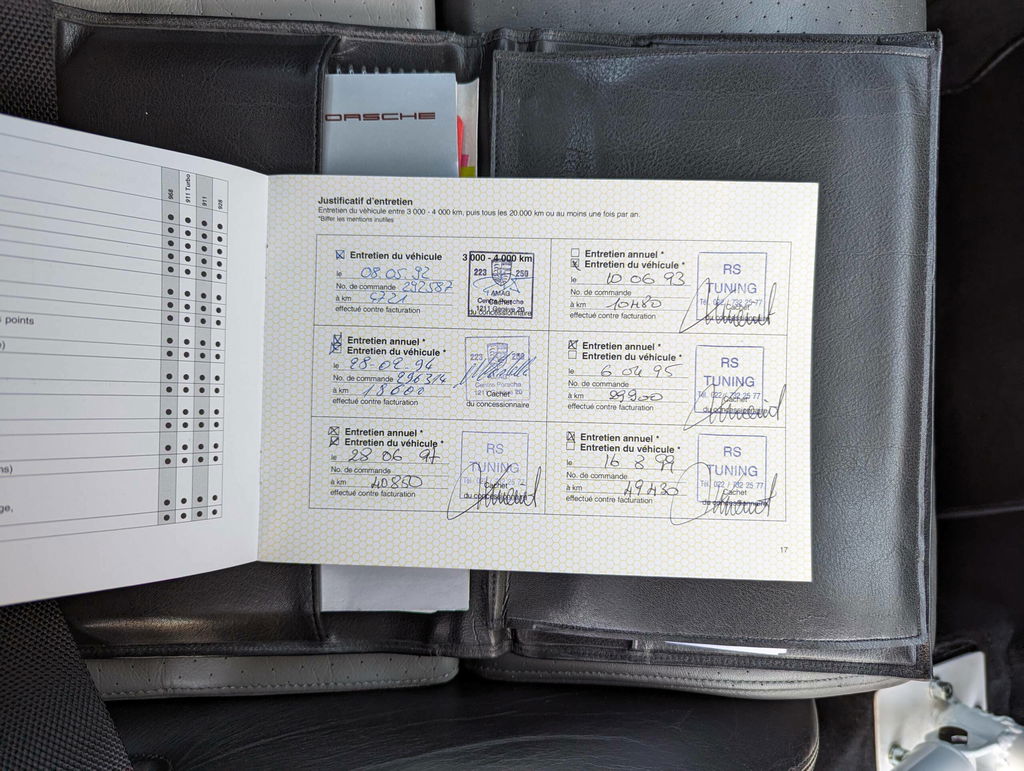 PORSCHE
968
911 Turbo
911
928
points
ge,
Justificatif d'entretien
Entretien du véhicule entre 3 000 - 4 000 km, puis tous les 20 000 km ou au moins une fois par an.
*Biffer les mentions inutiles
Entretien du véhicule 3 000 - 4 000 km
le 08.05.92
No. de commande 292587
à km
effectué contre facturation
223 250
AMAG
Centre Porsche
1211 Genève 20
Cachet
du concessionnaire
Entretien annuel *
Entretien du véhicule *
le 10 06 93
No. de commande
à km 10480
effectué contre facturation
RS
TUNING
Cachet
Entretien annuel *
Entretien du véhicule *
le 28-02-94
No. de commande 296314
à km 18600
effectué contre facturation
223 250
Centre Porsche
Cachet
du concessionnaire
Entretien annuel *
Entretien du véhicule *
le 6 04 95
No. de commande
à km 29900
effectué contre facturation
RS
TUNING
Tél. 022 / 732 25 77
Cachet
Entretien annuel *
Entretien du véhicule *
le 28 06 97
No. de commande
à km 40850
effectué contre facturation
RS
TUNING
Cachet
Entretien annuel *
Entretien du véhicule *
le 16 8 99
No. de commande
à km 49430
effectué contre facturation
RS
TUNING
Tél. 022 / 732 25 77
Cachet
17